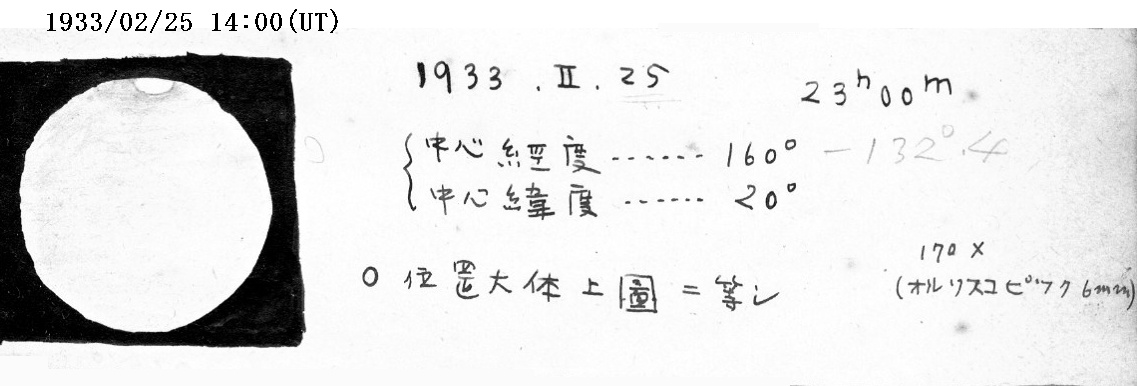 1933/02/25 14:00(UT)
1933.II.25 23h00m
中心経度……160° -132°.4
中心緯度……20°
○位置大体上圖ニ等シ
170×
(オルソスコピック6mm)